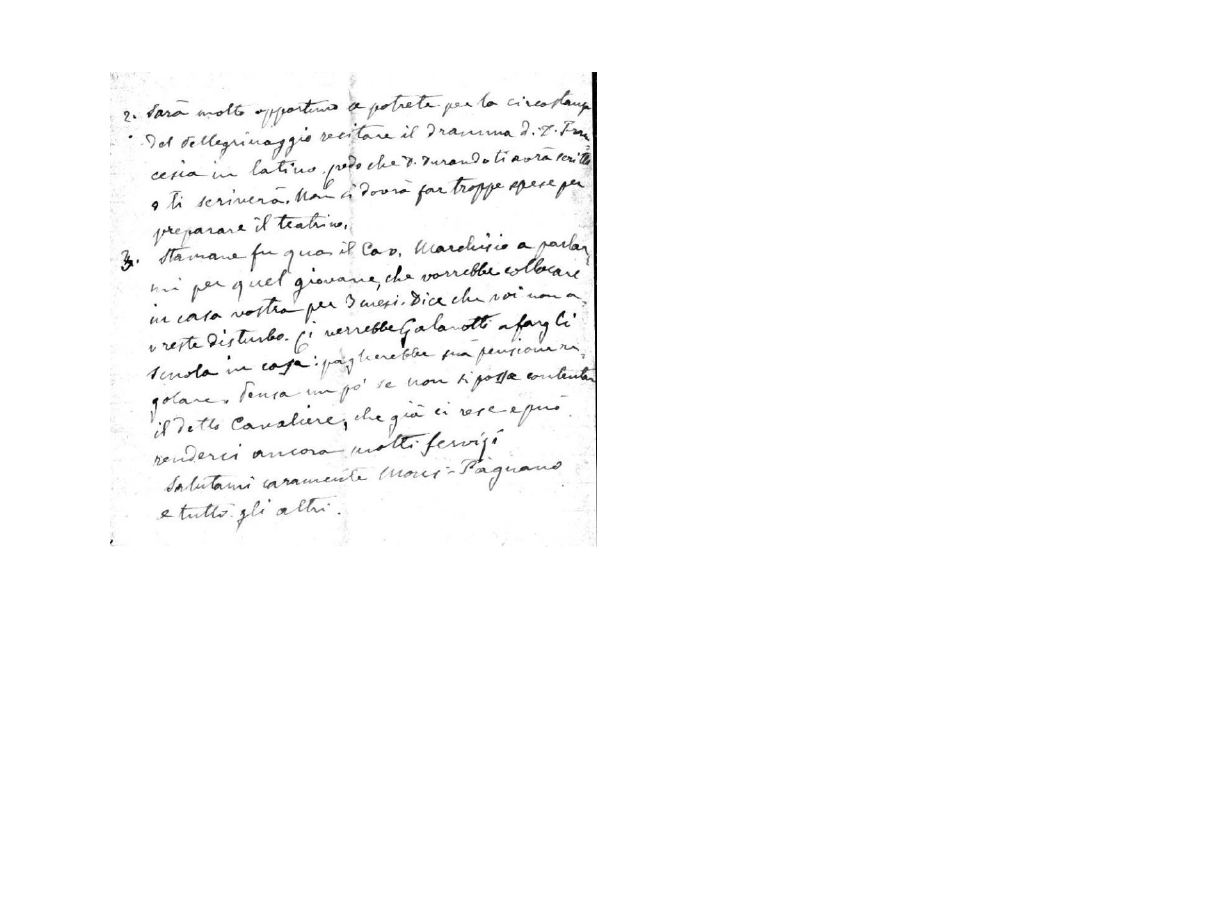 2. Sarà molto opportuno se potrete per la circostanza
del Pellegrinaggio recitare il dramma d. D. Fran=
cesia in latino. credo che D. Durando ti avrà scritto
o ti scriverà. Non si dovrà far troppe spese per
preparare il teatrino.
3. Stamane fu qua il Cav. Marchisio a parlar
mi per quel giovane, che vorrebbe collocare
in casa vostra per 3 mesi. Dice che voi non a=
vreste disturbo. Ci verrebbe Galanotti a fargli
scuola in casa: pagherebbe sua pensione re=
golare. Pensa un po' se non si possa contentar
il detto Cavaliere, che già ci rese e può
renderci ancora molti servizi
Salutami caramente Mons. Pagnano
e tutti gli altri.